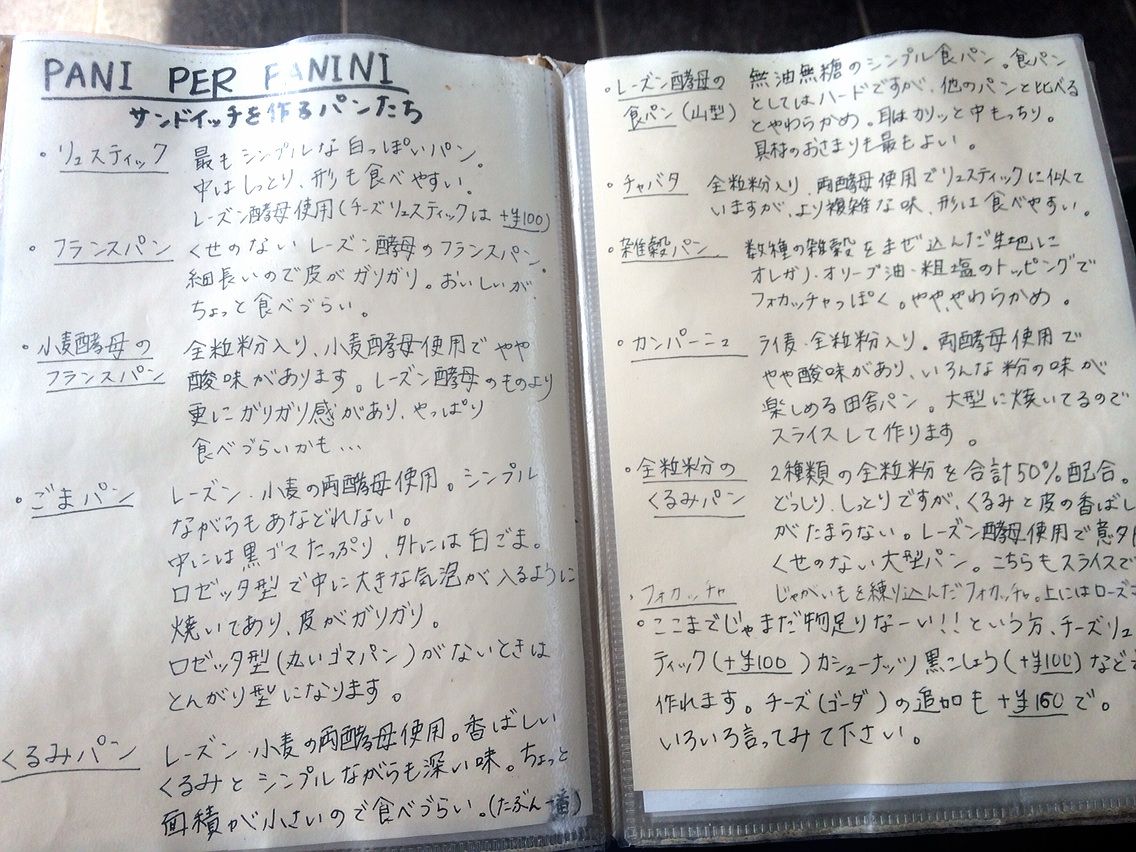 PANI PER PANINI
サンドイッチを作るパンたち
・リュスティック 最もシンプルな白っぽいパン。
中はしっとり、形も食べやすい。
レーズン酵母使用(チーズリュスティックは+¥100)
・フランスパン くせのないレーズン酵母のフランスパン。
細長いので皮がガリガリ。おいしいが、
ちょっと食べづらい。
・小麦酵母の 全粒粉入り、小麦酵母使用でやや
フランスパン 酸味があります。レーズン酵母のものより
更にガリガリ感があり、やっぱり
食べづらいかも…
・ごまパン レーズン・小麦の両酵母使用。シンプル
ながらもあなどれない。
中には黒ゴマたっぷり、外には白ごま。
ロゼッタ型で中に大きな気泡が入るように
焼いてあり、皮がガリガリ。
ロゼッタ型(丸いゴマパン)がないときは
とんがり型になります。
くるみパン レーズン・小麦の両酵母使用。香ばしい
くるみとシンプルながらも深い味。ちょっと
面積が小さいので食べづらい。(たぶん一番)
・レーズン酵母の 無油無糖のシンプル食パン。食パン
食パン(山型) としてはハードですが、他のパンと比べる
とやわらかめ。耳はカリッと中もっちり。
具材のおさまりも最もよい。
・チャバタ 全粒粉入り、両酵母使用でリュスティックに似て
いますが、より複雑な味、形は食べやすい。
・雑穀パン 数種の雑穀をまぜ込んだ生地に
オレガノ・オリーブ油・粗塩のトッピングで
フォカッチャっぽく。ややゃわらかめ。
・カンパーニュ ライ麦・全粒粉入り。両酵母使用で
やや酸味があり、いろんな粉の味が
楽しめる田舎パン。大型に焼いてるので
スライスして作ります。
・全粒粉の 2種類の全粒粉を合計50%配合。
くるみパン どっしり、しっとりですが、くるみと皮の香ばし
がたまらない。レーズン酵母使用で意外
くせのない大型パン。こちらもスライスで
・フォカッチャ じゃがいもを練り込んだフォカッチャ。上にはローズ
・ここまでじゃまだ物足りなーい!!という方、チーズリュ
ティック(+¥100)カシューナッツ黒こしょう(+¥100)など
作れます。チーズ(ゴーダ)の追加も+¥160で。
いろいろ言ってみて下さい。